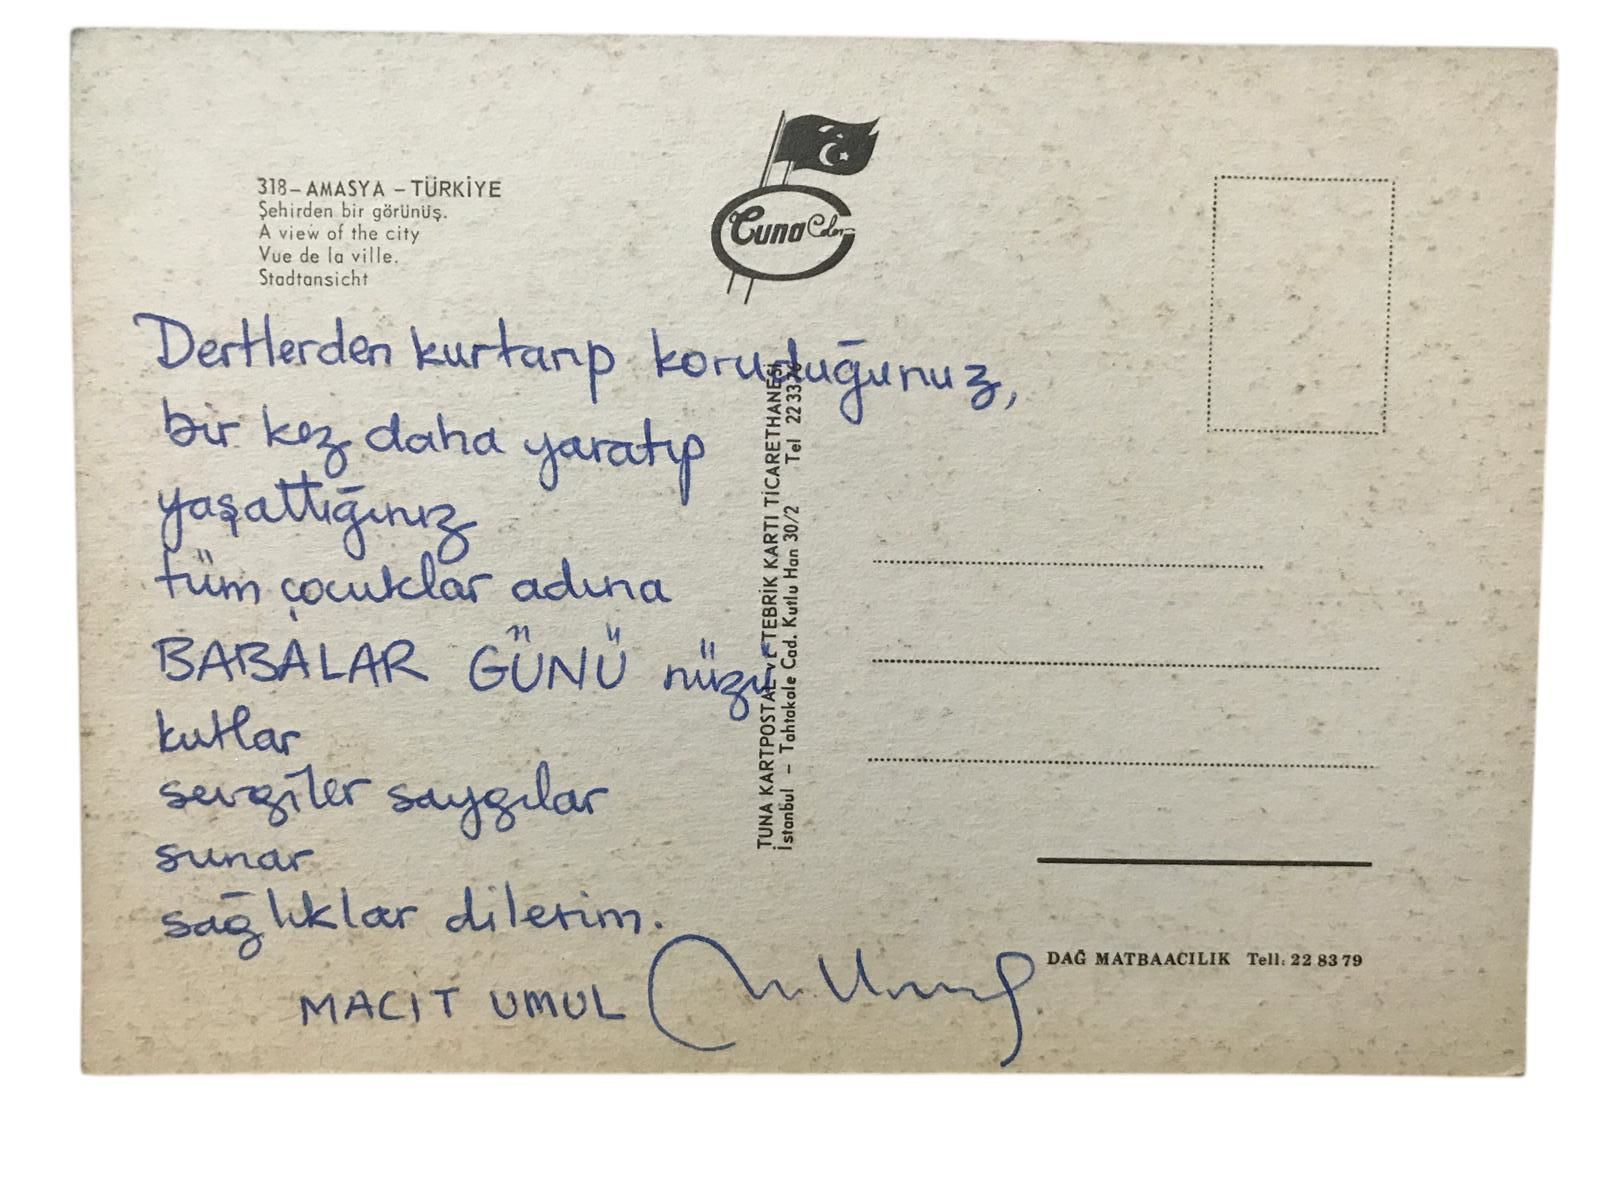 318-AMASYA - TÜRKİYE
Şehirden bir görünüş.
A view of the city
Vue de la ville.
Stadtansicht
Tuna Color
Dertlerden kurtarıp koruduğunuz,
bir kez daha yaratıp
yaşattığınız
tüm çocuklar adına
BABALAR GÜNÜ nüzü
kutlar
sevgiler saygılar
sunar
sağlıklar dilerim.
MACİT UMUL
TUNA KARTPOSTAL ve TEBRİK KARTI TİCARETHANESİ
İstanbul - Tahtakale Cad. Kutlu Han 30/2 Tel 22 33
DAĞ MATBAACILIK Tell: 22 83 79